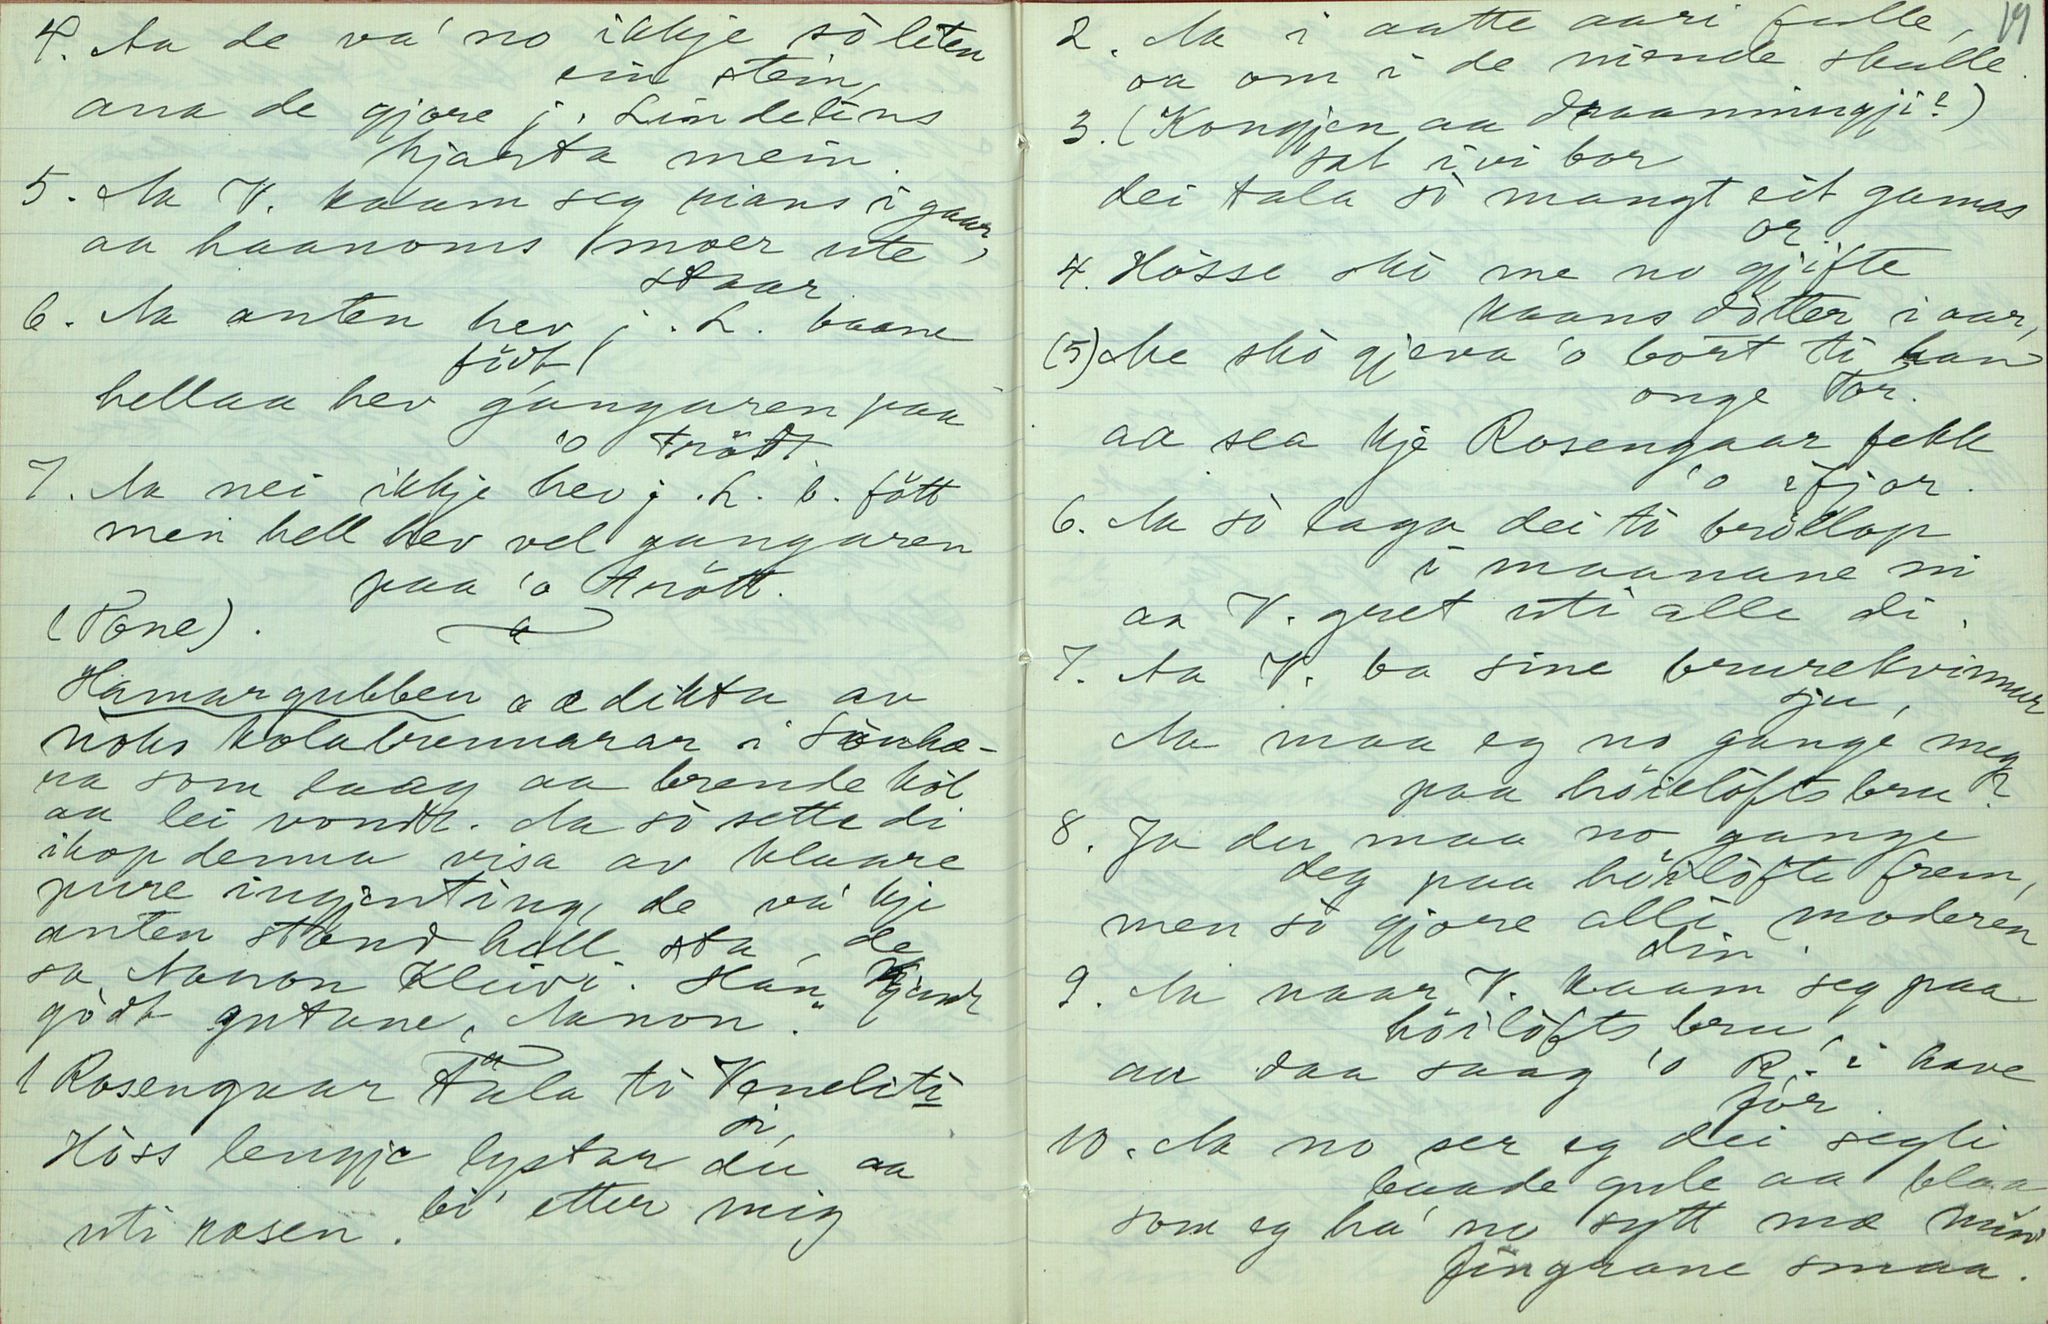 4. Aa de va' no ikkje so liten
ein stein,
ana de gjore j. Lindelins
hjarta mein.
5. Aa V. kaam seg rians i gaar,
aa haanoms moer ute
staar.
6. Aa anten hev j. L. baane
født
hellaa hev gangaren paa
'o trött.
7. Aa nei ikkje hev j. L. b. fött
men hell hev vel gangaren
paa 'o trött.
(Tone).
Hamargubben æ dikta av
noko kolabrennarar i
ra som laag aa brende kòl
aa lei vondt. Aa so sette di
ihop denna visa av klaare
pure ingjenting, de va' kje
anten stand hell sta, de
sa Aanon Kleivi. Han kjende
gòdt gutane, Aanon."
1 Rosengaar tala ti Veneliti
si,
Hòss lengje lystar du aa
bi' etter mig
uti rosen.
19
2. Aa i aatte aari fulle,
aa om i de niende skulle.
3. (Kongjen aa draanningji?)
sat ivi bor
dei tala so mangt eit gamas
or.
4. Hòsse ska me no gjifte
kaans dòtter i aar,
(5) Me sko gjeva 'o bort ti han
onge Tor.
aa sea kje Rosengaar fekk
'o ifjor.
6. Aa so laga dei ti bròllop
i maanane ni
aa V. gret uti alle di.
7. Aa V. ba sine brurekvinnur
sju,
Aa maa eg no gange meg
paa höielöftsbru?
8. Ja du maa no gange
deg paa höilöfte frem,
men so gjore alli moderen
din.
9. Aa naar V. kaam seg paa
höilöftsbru,
aa daa saag 'o R. i have
för.
10. Aa no ser eg dei segli
baade gule aa blaa
som eg ha' no sytt mæ mine
fingrane smaa.